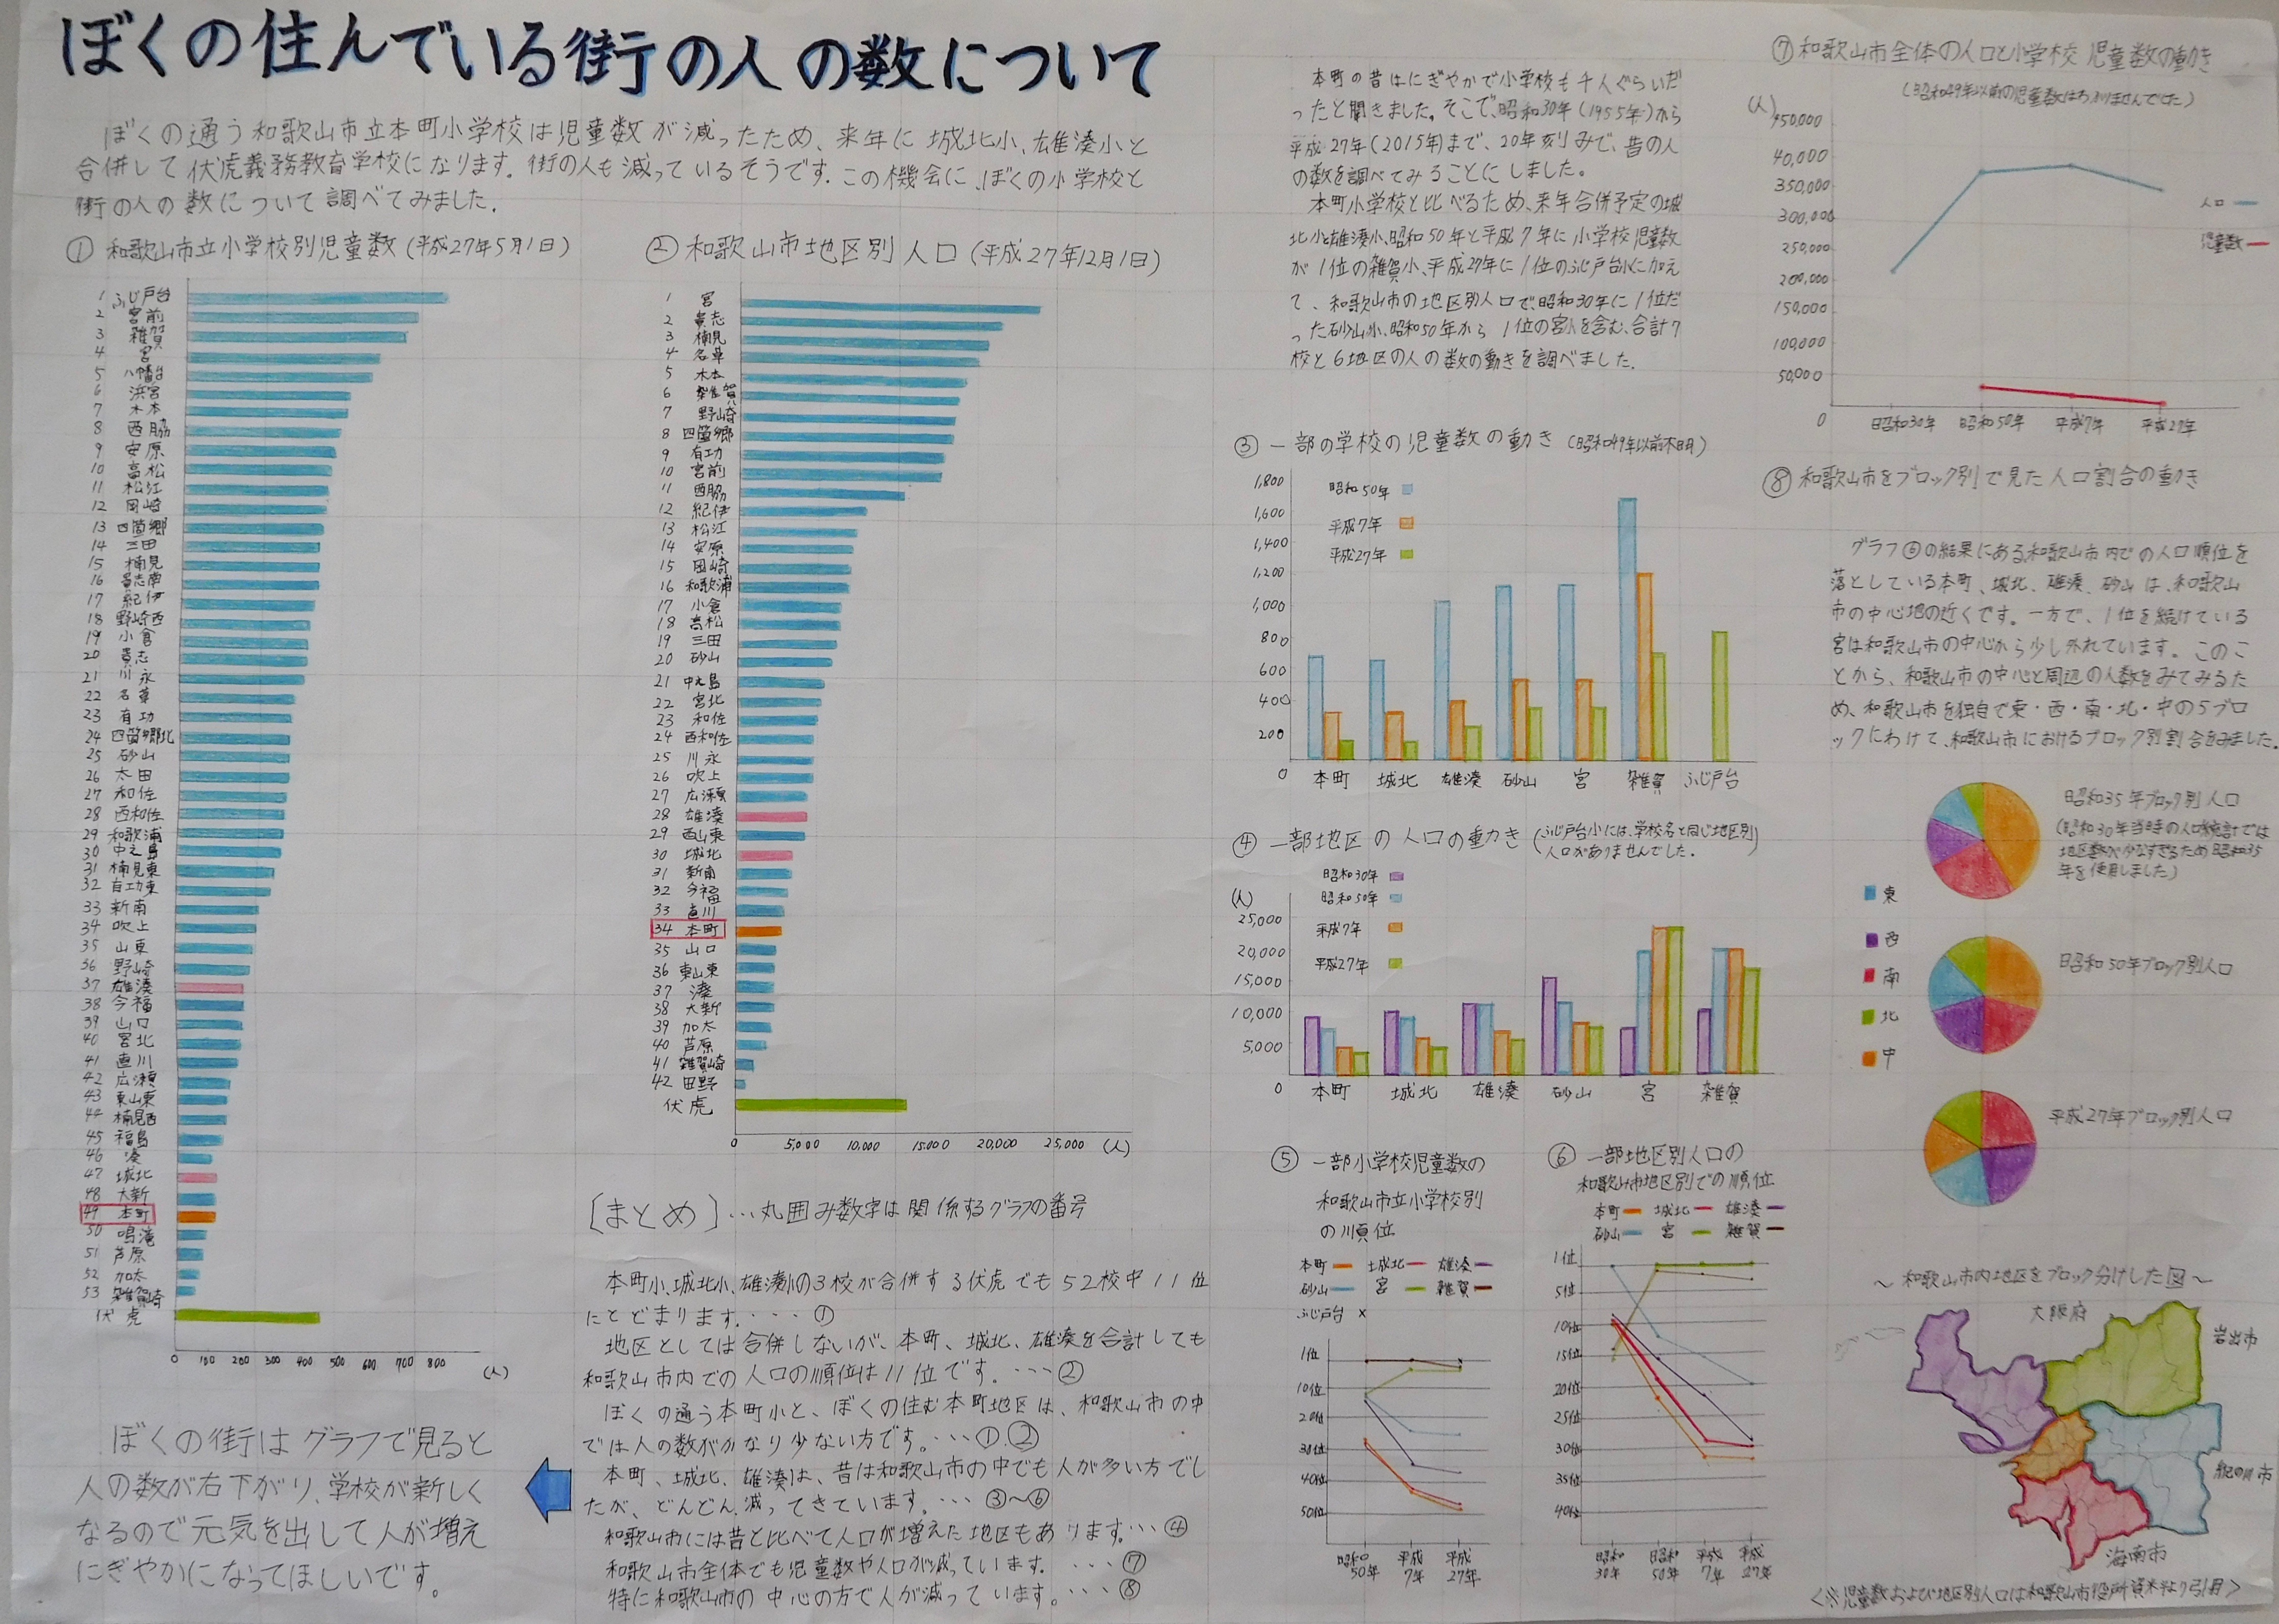 ぼくの住んでいる街の人の数について
ぼくの通う和歌山市立本町小学校は児童数が減ったため、来年に城北小、雄湊小と
合併して伏虎義務教育学校になります。街の人も減っているそうです。この機会に、ぼくの小学校と
街の人の数について調べてみました。
① 和歌山市立小学校別児童数(平成27年5月1日)
1 ふじ戸台
2 宮前
3 雑賀
4 宮
5 八幡台
6 浜宮
7 木本
8 西脇
9 安原
10 高松
11 松江
12 岡崎
13 四箇郷
14 三田
15 楠見
16 貴志南
17 紀伊
18 野崎西
19 小倉
20 貴志
21 川永
22 名草
23 有功
24 四箇郷北
25 砂山
26 太田
27 和佐
28 西和佐
29 和歌浦
30 中之島
31 楠見東
32 有功東
33 新南
34 吹上
35 山東
36 野崎
37 雄湊
38 今福
39 山口
40 宮北
41 直川
42 広瀬
43 東山東
44 楠見西
45 福島
46 湊
47 城北
48 大新
49 本町
50 鳴滝
51 芦原
52 加太
53 雑賀崎
伏虎
0 100 200 300 400 500 600 700 800 (人)
② 和歌山市地区別人口(平成27年12月1日)
1 宮
2 貴志
3 楠見
4 名草
5 木本
6 雑賀
7 野崎
8 四箇郷
9 有功
10 宮前
11 西脇
12 紀伊
13 松江
14 安原
15 岡崎
16 和歌浦
17 小倉
18 高松
19 三田
20 砂山
21 中之島
22 宮北
23 和佐
24 西和佐
25 川永
26 吹上
27 広瀬
28 雄湊
29 西山東
30 城北
31 新南
32 今福
33 直川
34 本町
35 山口
36 東山東
37 湊
38 大新
39 加太
40 芦原
41 雑賀崎
42 田野
伏虎
0 5,000 10,000 15,000 20,000 25,000 (人)
〔まとめ〕…丸囲み数字は関係するグラフの番号
本町小、城北小、雄湊小の3校が合併する伏虎でも52校中11位
にとどまります。・・・・①
地区としては合併しないが、本町、城北、雄湊を合計しても
和歌山市内での人口の順位は11位です。・・・・②
ぼくの通う本町小と、ぼくの住む本町地区は、和歌山市の中
では人の数がかなり少ない方です。・・・①、②
本町、城北、雄湊は、昔は和歌山市の中でも人が多い方でし
たが、どんどん減ってきています。・・・③〜⑥
和歌山市には昔と比べて人口が増えた地区もあります。・・・④
和歌山市全体でも児童数や人口が減っています。・・・・⑦
特に和歌山市の中心の方で人が減っています。・・・・⑧
ぼくの街はグラフで見ると
人の数が右下がり、学校が新しく
なるので元気を出して人が増え
にぎやかになってほしいです。
本町の昔はにぎやかで小学校も千人ぐらいだ
ったと聞きました。そこで、昭和30年(1955年)から
平成27年(2015年)まで、20年刻みで、昔の人
の数を調べてみることにしました。
本町小学校と比べるため、来年合併予定の城
北小と雄湊小、昭和50年と平成7年に小学校児童数
が1位の雑賀小、平成27年に1位のふじ戸台小に加え
て、和歌山市の地区別人口で、昭和30年に1位だ
った砂山小、昭和50年から1位の宮小を含む、合計7
校と6地区の人の数の動きを調べました。
③ 一部の学校の児童数の動き (昭和49年以前不明)
昭和50年
平成7年
平成27年
1,800
1,600
1,400
1,200
1,000
800
600
400
200
0
本町 城北 雄湊 砂山 宮 雑賀 ふじ戸台
④ 一部地区の人口の動き (ふじ戸台小には、学校名と同じ地区別
人口がありませんでした。)
昭和30年
昭和50年
平成7年
平成27年
(人)
25,000
20,000
15,000
10,000
5,000
0
本町 城北 雄湊 砂山 宮 雑賀
⑤ 一部小学校児童数の
和歌山市立小学校別
の順位
本町 城北 雄湊
砂山 宮 雑賀
ふじ戸台 ×
1位
10位
20位
30位
40位
50位
昭和50年 平成7年 平成27年
⑥ 一部地区別人口の
和歌山市地区別での順位
本町 城北 雄湊
砂山 宮 雑賀
1位
5位
10位
15位
20位
25位
30位
35位
40位
昭和30年 昭和50年 平成7年 平成27年
⑦ 和歌山市全体の人口と小学校児童数の動き
(昭和49年以前の児童数はわかりませんでした)
(人)
450,000
40,000
350,000
300,000
250,000
200,000
150,000
100,000
50,000
0
人口
児童数
昭和30年 昭和50年 平成7年 平成27年
⑧ 和歌山市をブロック別で見た人口割合の動き
グラフ⑥の結果にある和歌山市内での人口順位を
落としている本町、城北、雄湊、砂山は、和歌山
市の中心地の近くです。一方で、1位を続けている
宮は和歌山市の中心から少し外れています。このこ
とから、和歌山市の中心と周辺の人数をみてみるた
め、和歌山市を独自で東・西・南・北・中の5ブロ
ックにわけて、和歌山市におけるブロック別割合をみました。
昭和35年ブロック別人口
(昭和30年当時の人口統計では
地区数が少なすぎるため昭和35
年を使用しました)
東
西
南
北
中
昭和50年ブロック別人口
平成27年ブロック別人口
〜和歌山市内地区をブロック分けした図〜
大阪府
岩出市
紀の川市
海南市
<※児童数および地区別人口は和歌山市役所資料より引用>